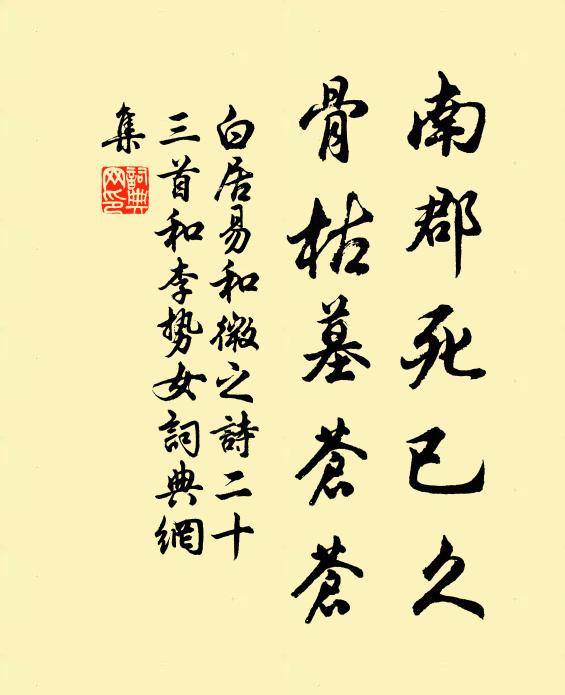 南郡死已久
骨枯墓蒼蒼
白居易和微之詩二十
三首和李勢女詞典網
集
詞典
网印